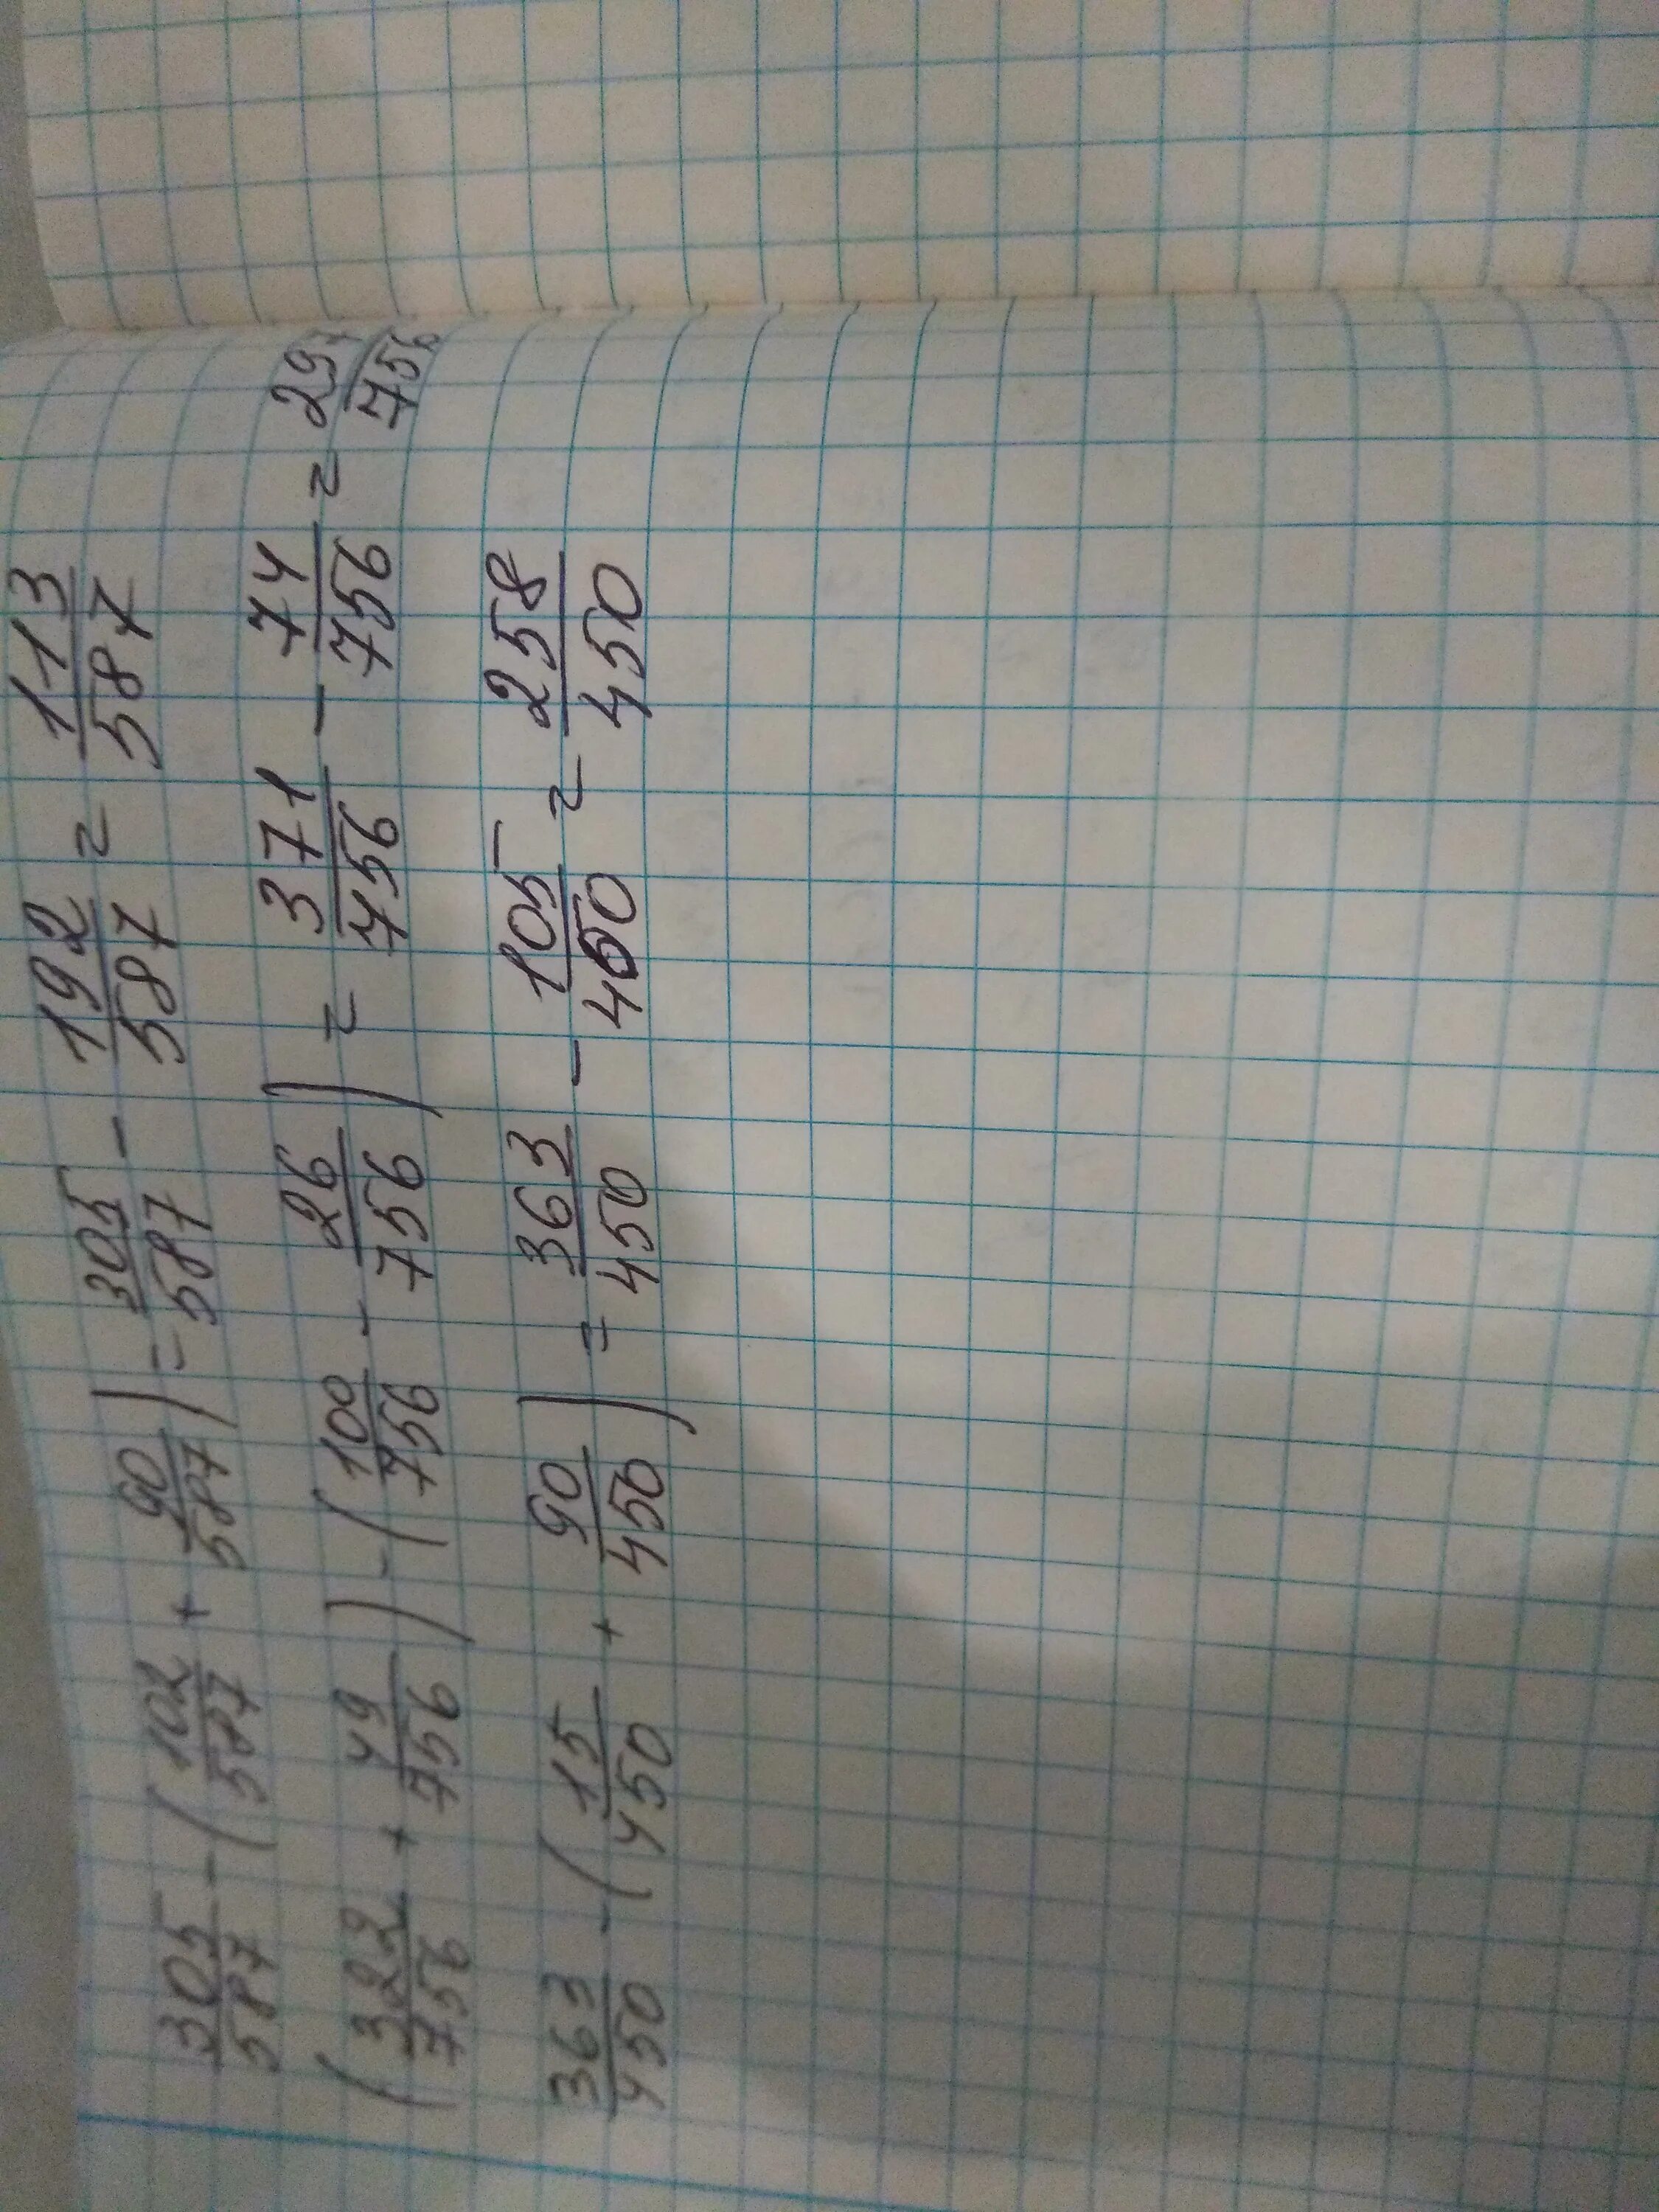 305/587 - (102/587 + 90/587) = 305/587 - 192/587 = 113/587
(322/756 + 49/756) - (100/756 - 26/756) = 371/756 - 74/756 = 297/756
363/450 - (15/450 + 90/450) = 363/450 - 105/450 = 258/450